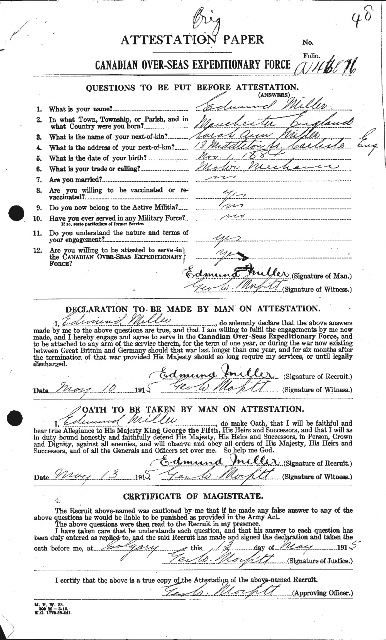 Orig
48
ATTESTATION PAPER
No.
CANADIAN OVER-SEAS EXPEDITIONARY FORCE
Folio.
QUESTIONS TO BE PUT BEFORE ATTESTATION.
(ANSWERS)
1. What is your name? Edmund Miller
2. In what Town, Township, or Parish, and in
what Country were you born? Manchester England
3. What is the name of your next-of-kin? Sarah Ann Miller
4. What is the address of your next-of-kin? Carlisle Eng
5. What is the date of your birth? Nov 1,
6. What is your trade or calling? Motor Mechanic
7. Are you married? no
8. Are you willing to be vaccinated or re-
vaccinated? Yes
9. Do you now belong to the Active Militia?
10. Have you ever served in any Military Force? no
If so, state particulars of former Service.
11. Do you understand the nature and terms of
your engagement? yes
12. Are you willing to be attested to serve in
the CANADIAN OVER-SEAS EXPEDITIONARY
FORCE? yes
Edmund Miller (Signature of Man.)
(Signature of Witness.)
DECLARATION TO BE MADE BY MAN ON ATTESTATION.
I, Edmund Miller, do solemnly declare that the above answers
made by me to the above questions are true, and that I am willing to fulfil the engagements by me now
made, and I hereby engage and agree to serve in the Canadian Over-Seas Expeditionary Force, and
to be attached to any arm of the service therein, for the term of one year, or during the war now existing
between Great Britain and Germany should that war last longer than one year, and for six months after
the termination of that war provided His Majesty should so long require my services, or until legally
discharged.
Edmund Miller (Signature of Recruit.)
Date May 10 1915 (Signature of Witness.)
OATH TO BE TAKEN BY MAN ON ATTESTATION.
I, Edmund Miller, do make Oath, that I will be faithful and
bear true Allegiance to His Majesty King George the Fifth, His Heirs and Successors, and that I will as
in duty bound honestly and faithfully defend His Majesty, His Heirs and Successors, in Person, Crown
and Dignity, against all enemies, and will observe and obey all orders of His Majesty, His Heirs and
Successors, and of all the Generals and Officers set over me. So help me God.
Edmund Miller (Signature of Recruit.)
Date May 13 1915 (Signature of Witness.)
CERTIFICATE OF MAGISTRATE.
The Recruit above-named was cautioned by me that if he made any false answer to any of the
above questions he would be liable to be punished as provided in the Army Act.
The above questions were then read to the Recruit in my presence.
I have taken care that he understands each question, and that his answer to each question has
been duly entered as replied to, and the said Recruit has made and signed the declaration and taken the
oath before me, at Calgary this 13 day of May 1915
(Signature of Justice.)
I certify that the above is a true copy of the Attestation of the above-named Recruit.
(Approving Officer.)
M. F. W. 23.